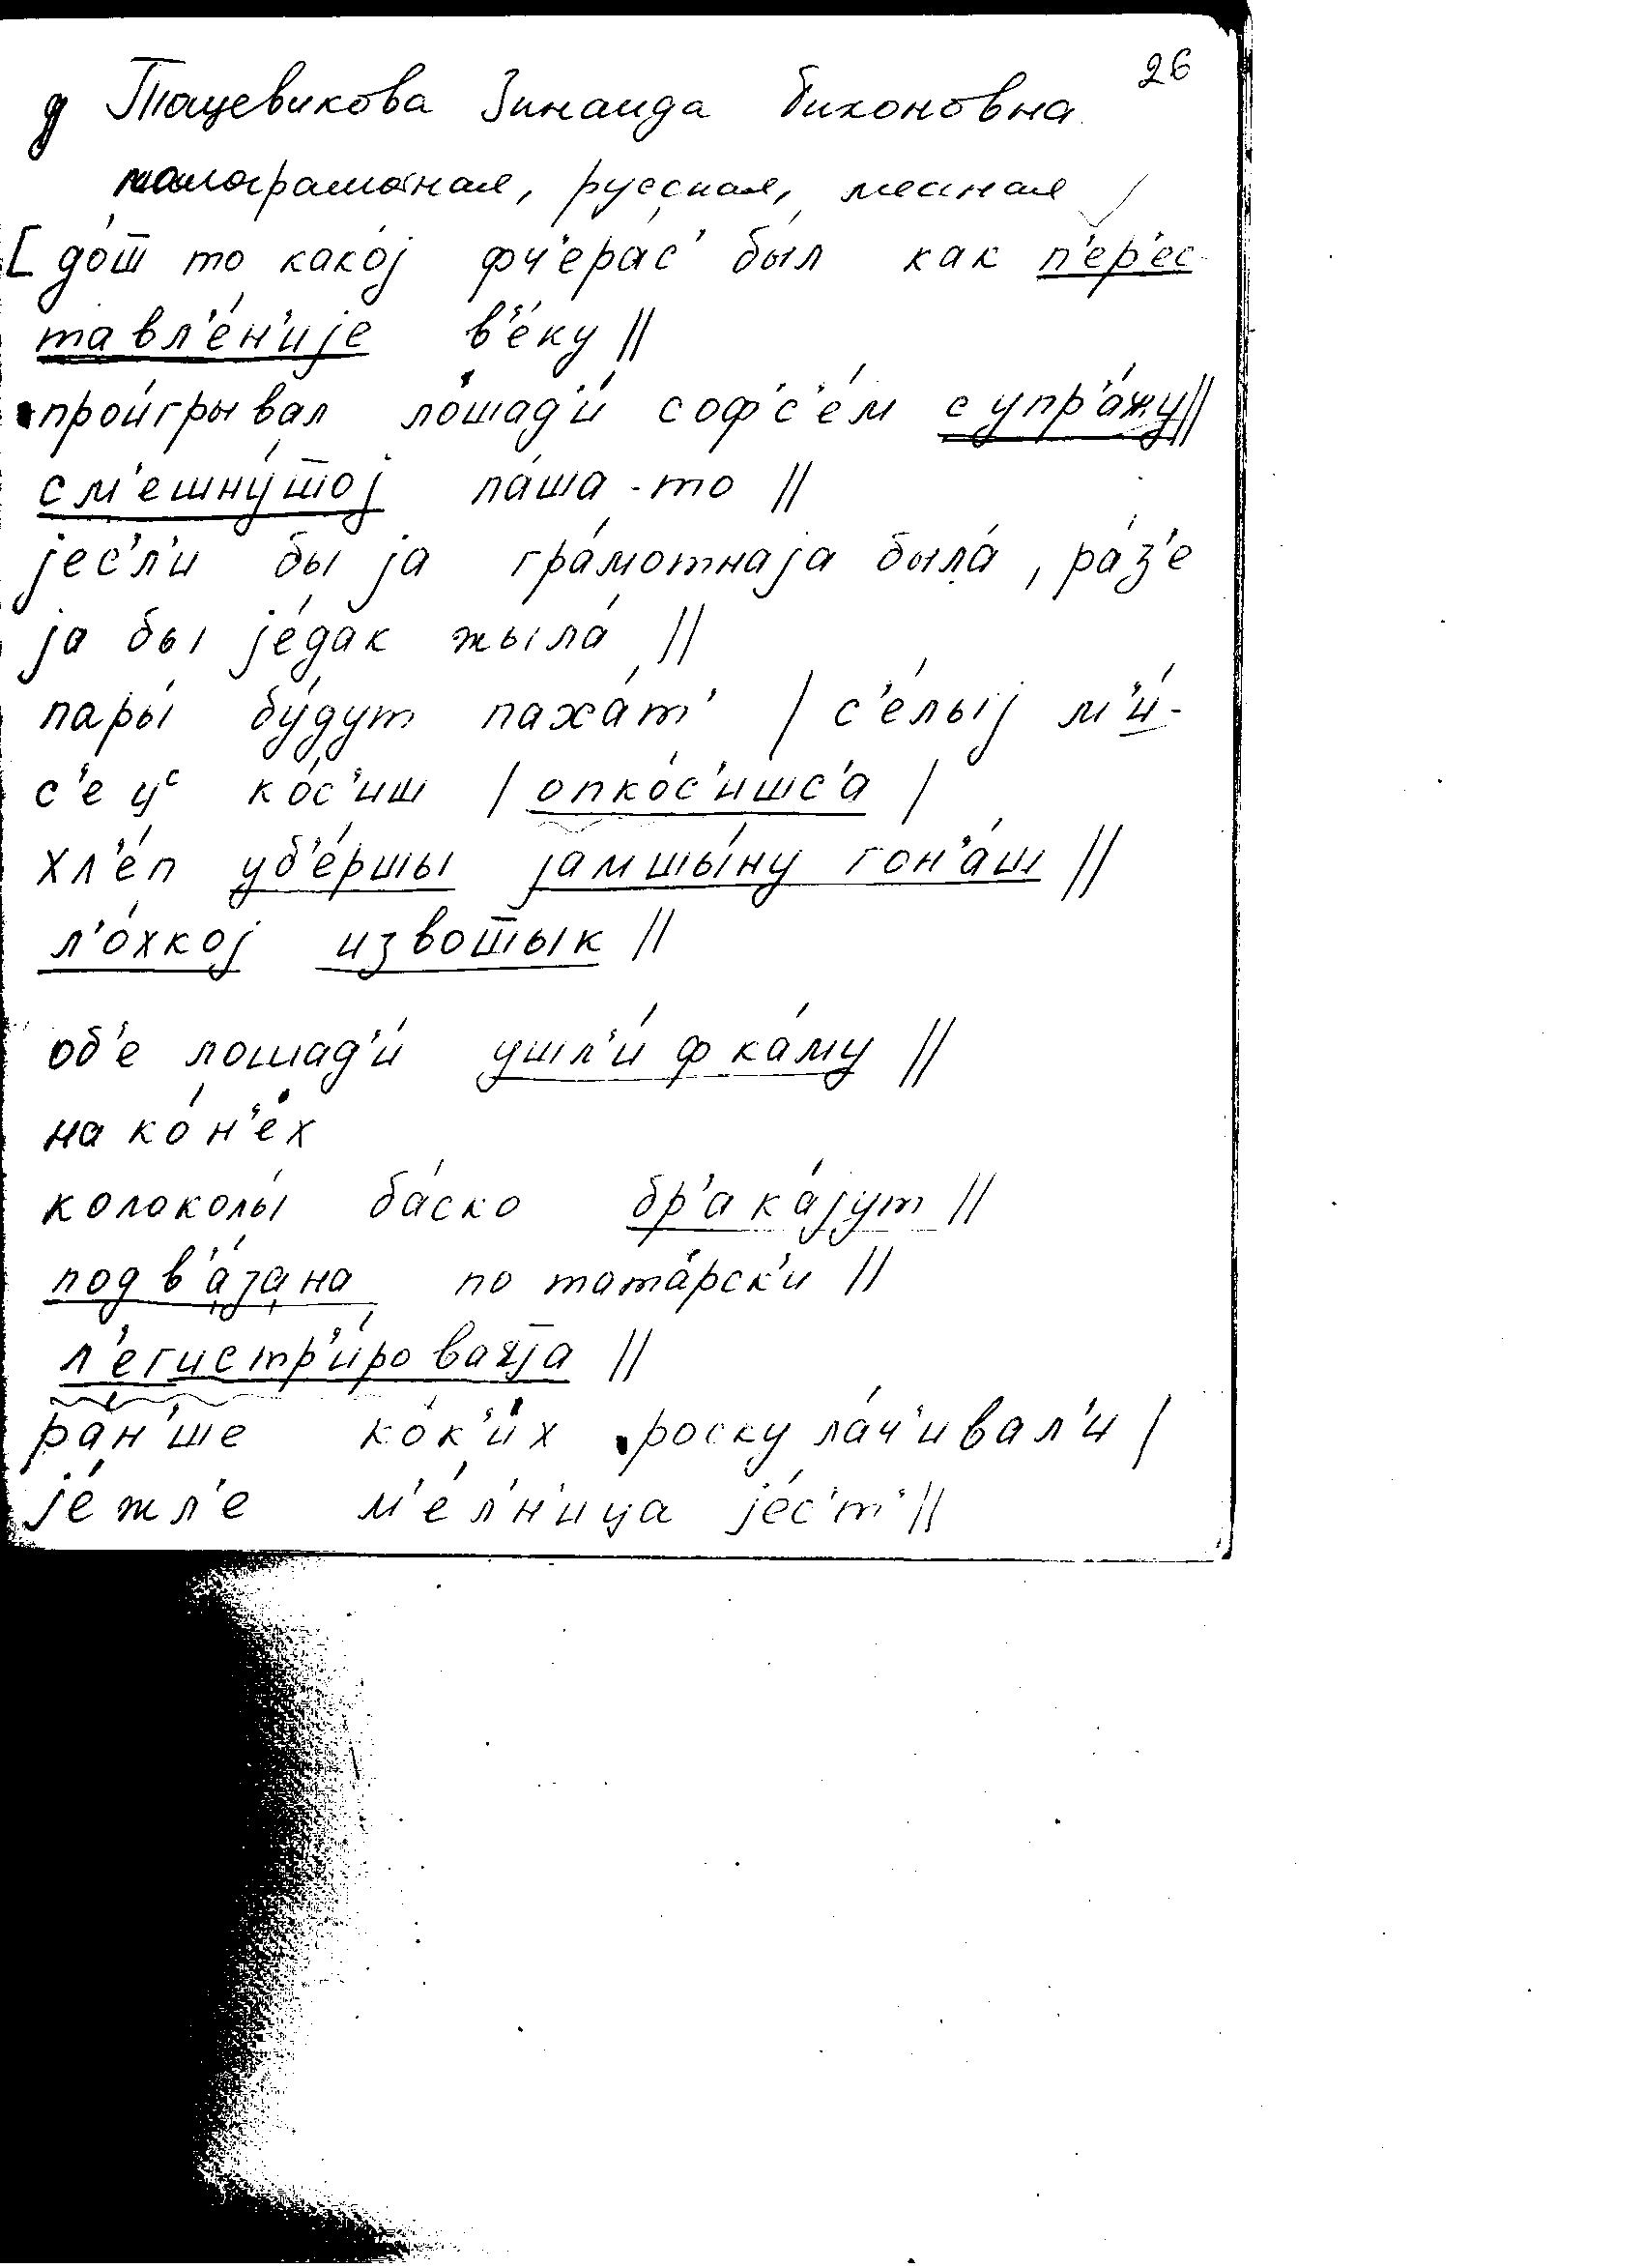 26
д Тацевикова Зинаида Тихоновна
малограмотная, русская, местная
[ до́ш̅ то како́j фч'ера́с' бы́л как п'ер'ес-
тавл'е́н'иjе в'е́ку ||
прои́грывал лошад'и́ соф'с'е́м с упр'а́жу ||
см'ешну́ш̅оj па́ша-то ||
jес'л'и бы jа гра́мотнаjа была́, ра́з'е
jа бы jе́дак жыла́ ||
пары́ бу́дут паха́т' | с'е́лыj м'и́-
с'ец кос'иш | опко́с'ишс'а |
хл'е́п уб'е́ршы jамшы́ну гон'а́ш ||
л'о́хкоj извош̅ык ||
об'е лошад'и́ ушл'и́ ф ка́му ||
на ко́н'ех
колоколы́ ба́ско бр'ака́jут ||
подв'а́зана по тата́рск'и ||
ра́н'ше ко́к'их роскула́ч'ивал'и |
jе́жл'е м'е́л'н'ица jе́с'т' ||